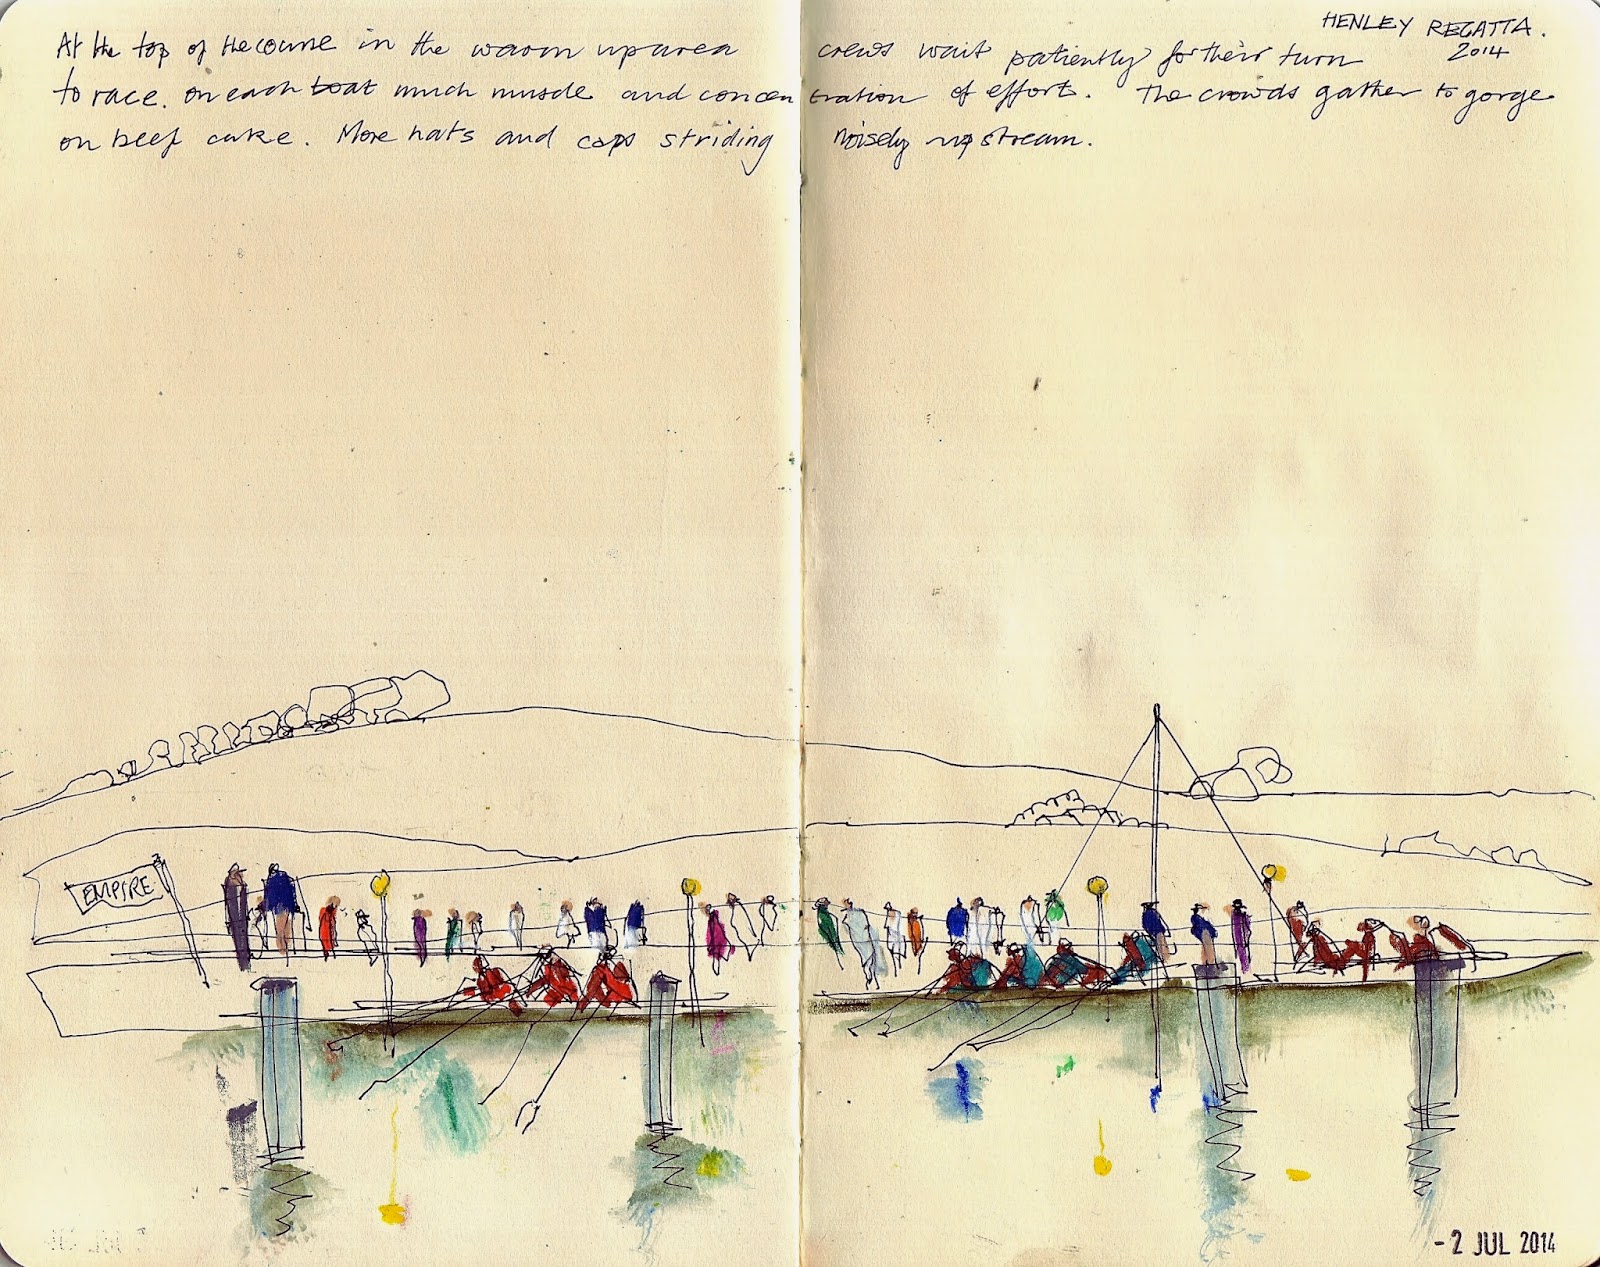 HENLEY REGATTA.
2014
At the top of the course in the warm up area crews wait patiently for their turn
to race. on each boat much muscle and concentration of effort. The crowds gather to gorge
on beef cake. More hats and caps striding noisely upstream.
EMPIRE
- 2 JUL 2014